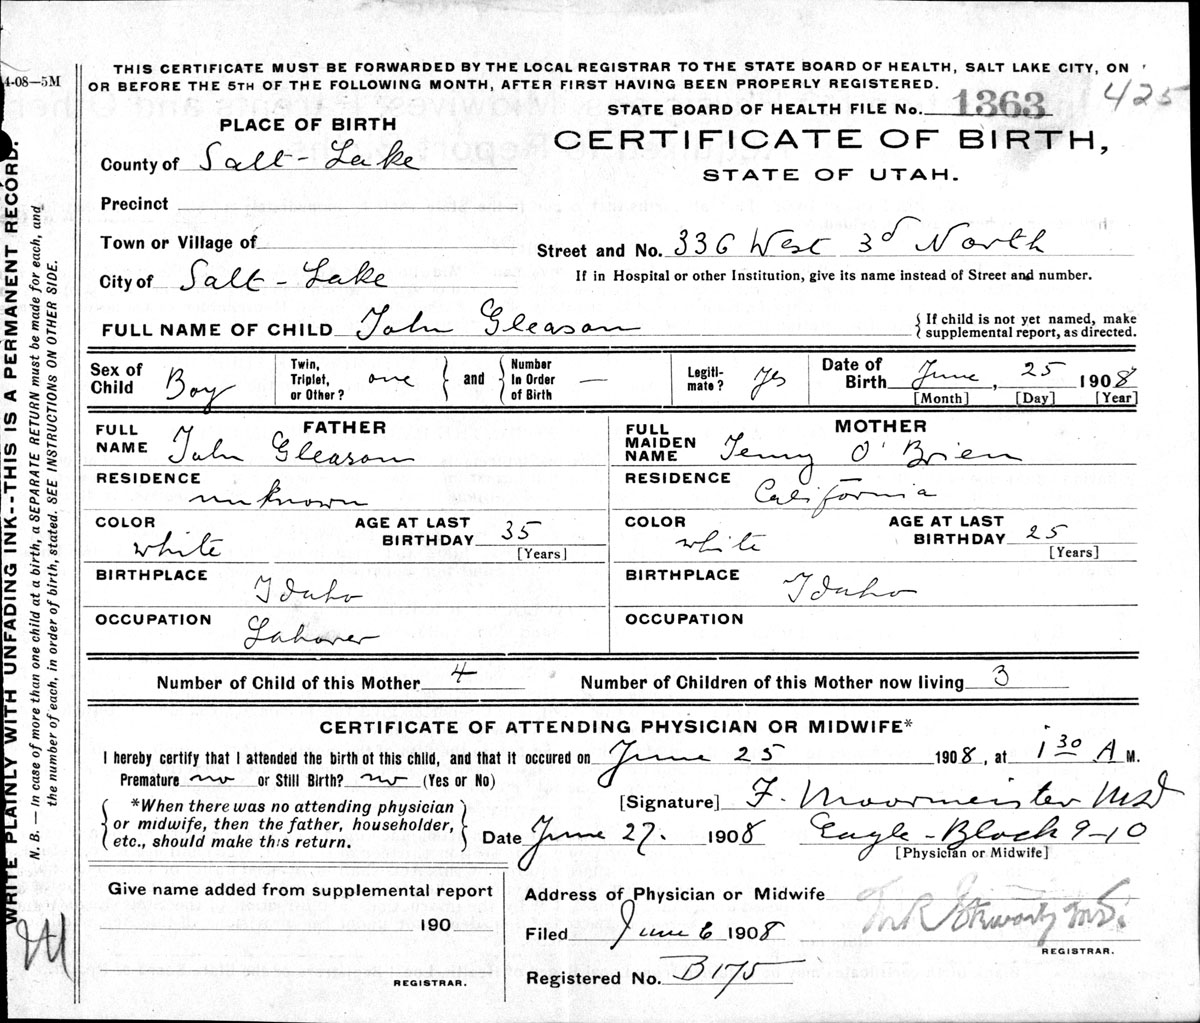 THIS CERTIFICATE MUST BE FORWARDED BY THE LOCAL REGISTRAR TO THE STATE BOARD OF HEALTH, SALT LAKE CITY, ON
OR BEFORE THE 5TH OF THE FOLLOWING MONTH, AFTER FIRST HAVING BEEN PROPERLY REGISTERED.
4-08—5M
425
STATE BOARD OF HEALTH FILE No. 1363
CERTIFICATE OF BIRTH,
STATE OF UTAH.
PLACE OF BIRTH
County of Salt-Lake
Precinct
Town or Village of
City of Salt-Lake
Street and No. 336 West 3d North
If in Hospital or other Institution, give its name instead of Street and number.
FULL NAME OF CHILD John Gleason
{ If child is not yet named, make
supplemental report, as directed.
Sex of Child Boy
Twin, Triplet, or Other? one } and { Number In Order of Birth —
Legiti-mate? Yes
Date of Birth June, 25 1908
[Month] [Day] [Year]
FATHER
FULL NAME John Gleason
RESIDENCE unknown
COLOR white
AGE AT LAST BIRTHDAY 35 [Years]
BIRTHPLACE Idaho
OCCUPATION Laborer
MOTHER
FULL MAIDEN NAME Jenny O'Brien
RESIDENCE California
COLOR white
AGE AT LAST BIRTHDAY 25 [Years]
BIRTHPLACE Idaho
OCCUPATION
Number of Child of this Mother 4
Number of Children of this Mother now living 3
CERTIFICATE OF ATTENDING PHYSICIAN OR MIDWIFE*
I hereby certify that I attended the birth of this child, and that it occured on June 25 1908, at 1 30 A M.
Premature no or Still Birth? no (Yes or No)
*When there was no attending physician
or midwife, then the father, householder,
etc., should make this return.
[Signature] F. Moormeister MD
Date June 27. 1908 Eagle-Block 9-10
[Physician or Midwife]
Give name added from supplemental report
190
REGISTRAR.
Address of Physician or Midwife
Filed June 6 1908
REGISTRAR.
Registered No. B175
WRITE PLAINLY WITH UNFADING INK--THIS IS A PERMANENT RECORD.
N. B.— In case of more than one child at a birth, a SEPARATE RETURN must be made for each, and
the number of each, in order of birth, stated. SEE INSTRUCTIONS ON OTHER SIDE.